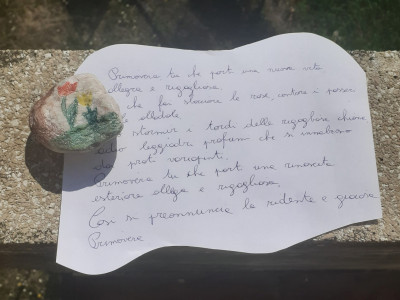 Primavera tu che porti una nuova vita
allegra e rigogliosa
che fai sbocciare le rose, cantare i passeri
e
stormir e tordi delle rigogliose chiome
leggiadri profumi che si innalzano
da prati variopinti.
Primavera tu che porti una rinascita
esteriore allegra e rigogliosa.
Così si preannuncia la ridente e giocosa
Primavera